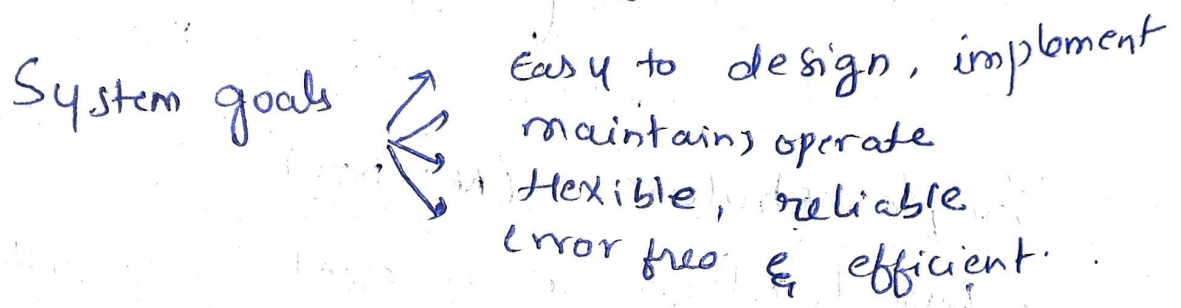 System goals
Easy to design, implement
maintain, operate
flexible, reliable
error free & efficient.